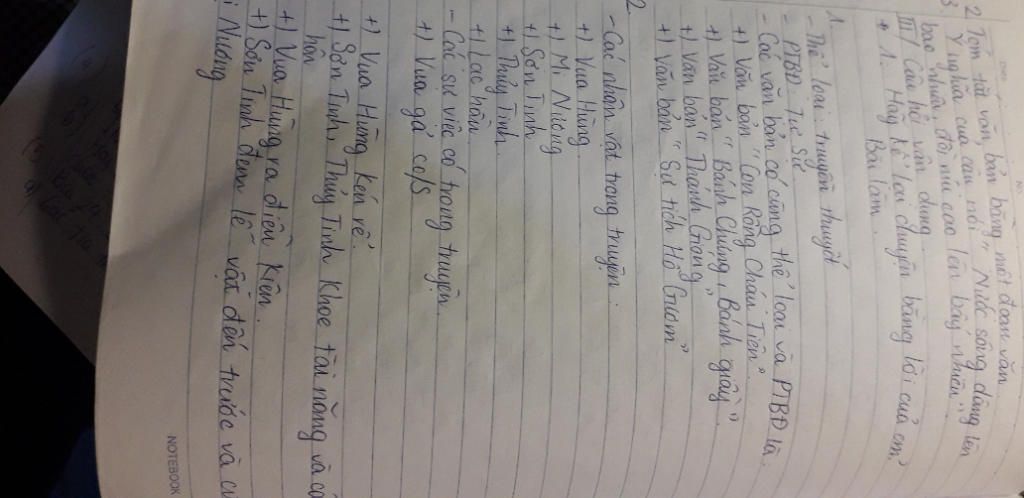 2 Tóm tắt văn bản bằng một đoạn văn
3 Ý nghĩa của câu nói "Nước sông dâng lên
bao nhiêu đồi núi cao lên bấy nhiêu"
III/ Câu hỏi vận dụng
1. Hãy kể lại chuyện bằng lời của em?
Bài làm.
1.
- Thể loại: truyền thuyết
- PTBĐ: Tự Sự
- Các văn bản có cùng thể loại và PTBĐ là:
+) Văn bản "Con Rồng Cháu Tiên".
+) Văn bản "Bánh Chưng, Bánh giầy".
+) Văn bản "Thánh Gióng"
+) Văn bản "Sự tích Hồ Gươm"
2.
- Các nhân vật trong truyện:
+) Vua Hùng
+) Mị Nương
+) Sơn Tinh
+) Thủy Tinh.
+) Lạc hầu
- Các sự việc có trong truyện.
+) Vua gả c/s
+) Vua Hùng kén rể.
+) Sơn Tinh, Thủy Tinh khoe tài năng và
hôn
+) Vua Hùng ra điều kiện.
+) Sơn Tinh đem lễ vật đến trước và
Nương
NOTEBOOK